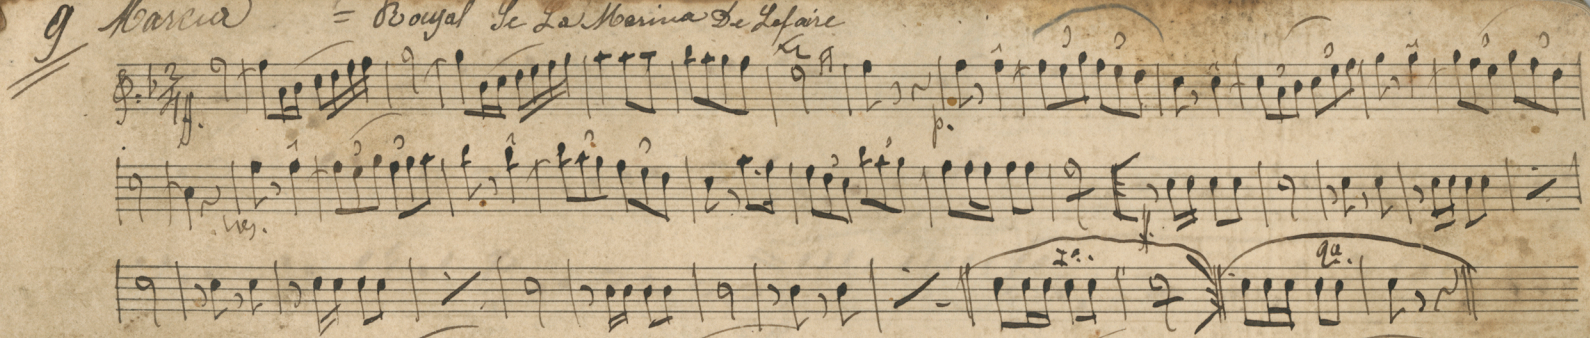 9 Marcia = Royal De La Marina De Lefaire
ff.
p.
f.
1a.
2a.